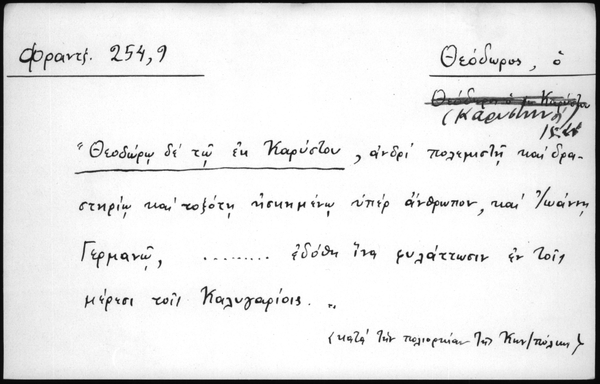 Φραντζ. 254,9
Θεόδωρος, ὁ
(Καρυστηνός)
"Θεοδώρῳ δέ τῷ ἐκ Καρύστου, ἀνδρί πολεμιστῇ καί δρα-
στηρίῳ καί τοξότῃ ἠσκημένῳ ὑπέρ ἄνθρωπον, καί Ἰωάννῃ
Γερμανῷ, ......... ἐδόθη ἵνα φυλάττωσιν ἐν τοῖς
μέρεσι τοῖς Καλυγαρίοις. "
(κατά τήν πολιορκίαν τῆς Κων/πόλεως)